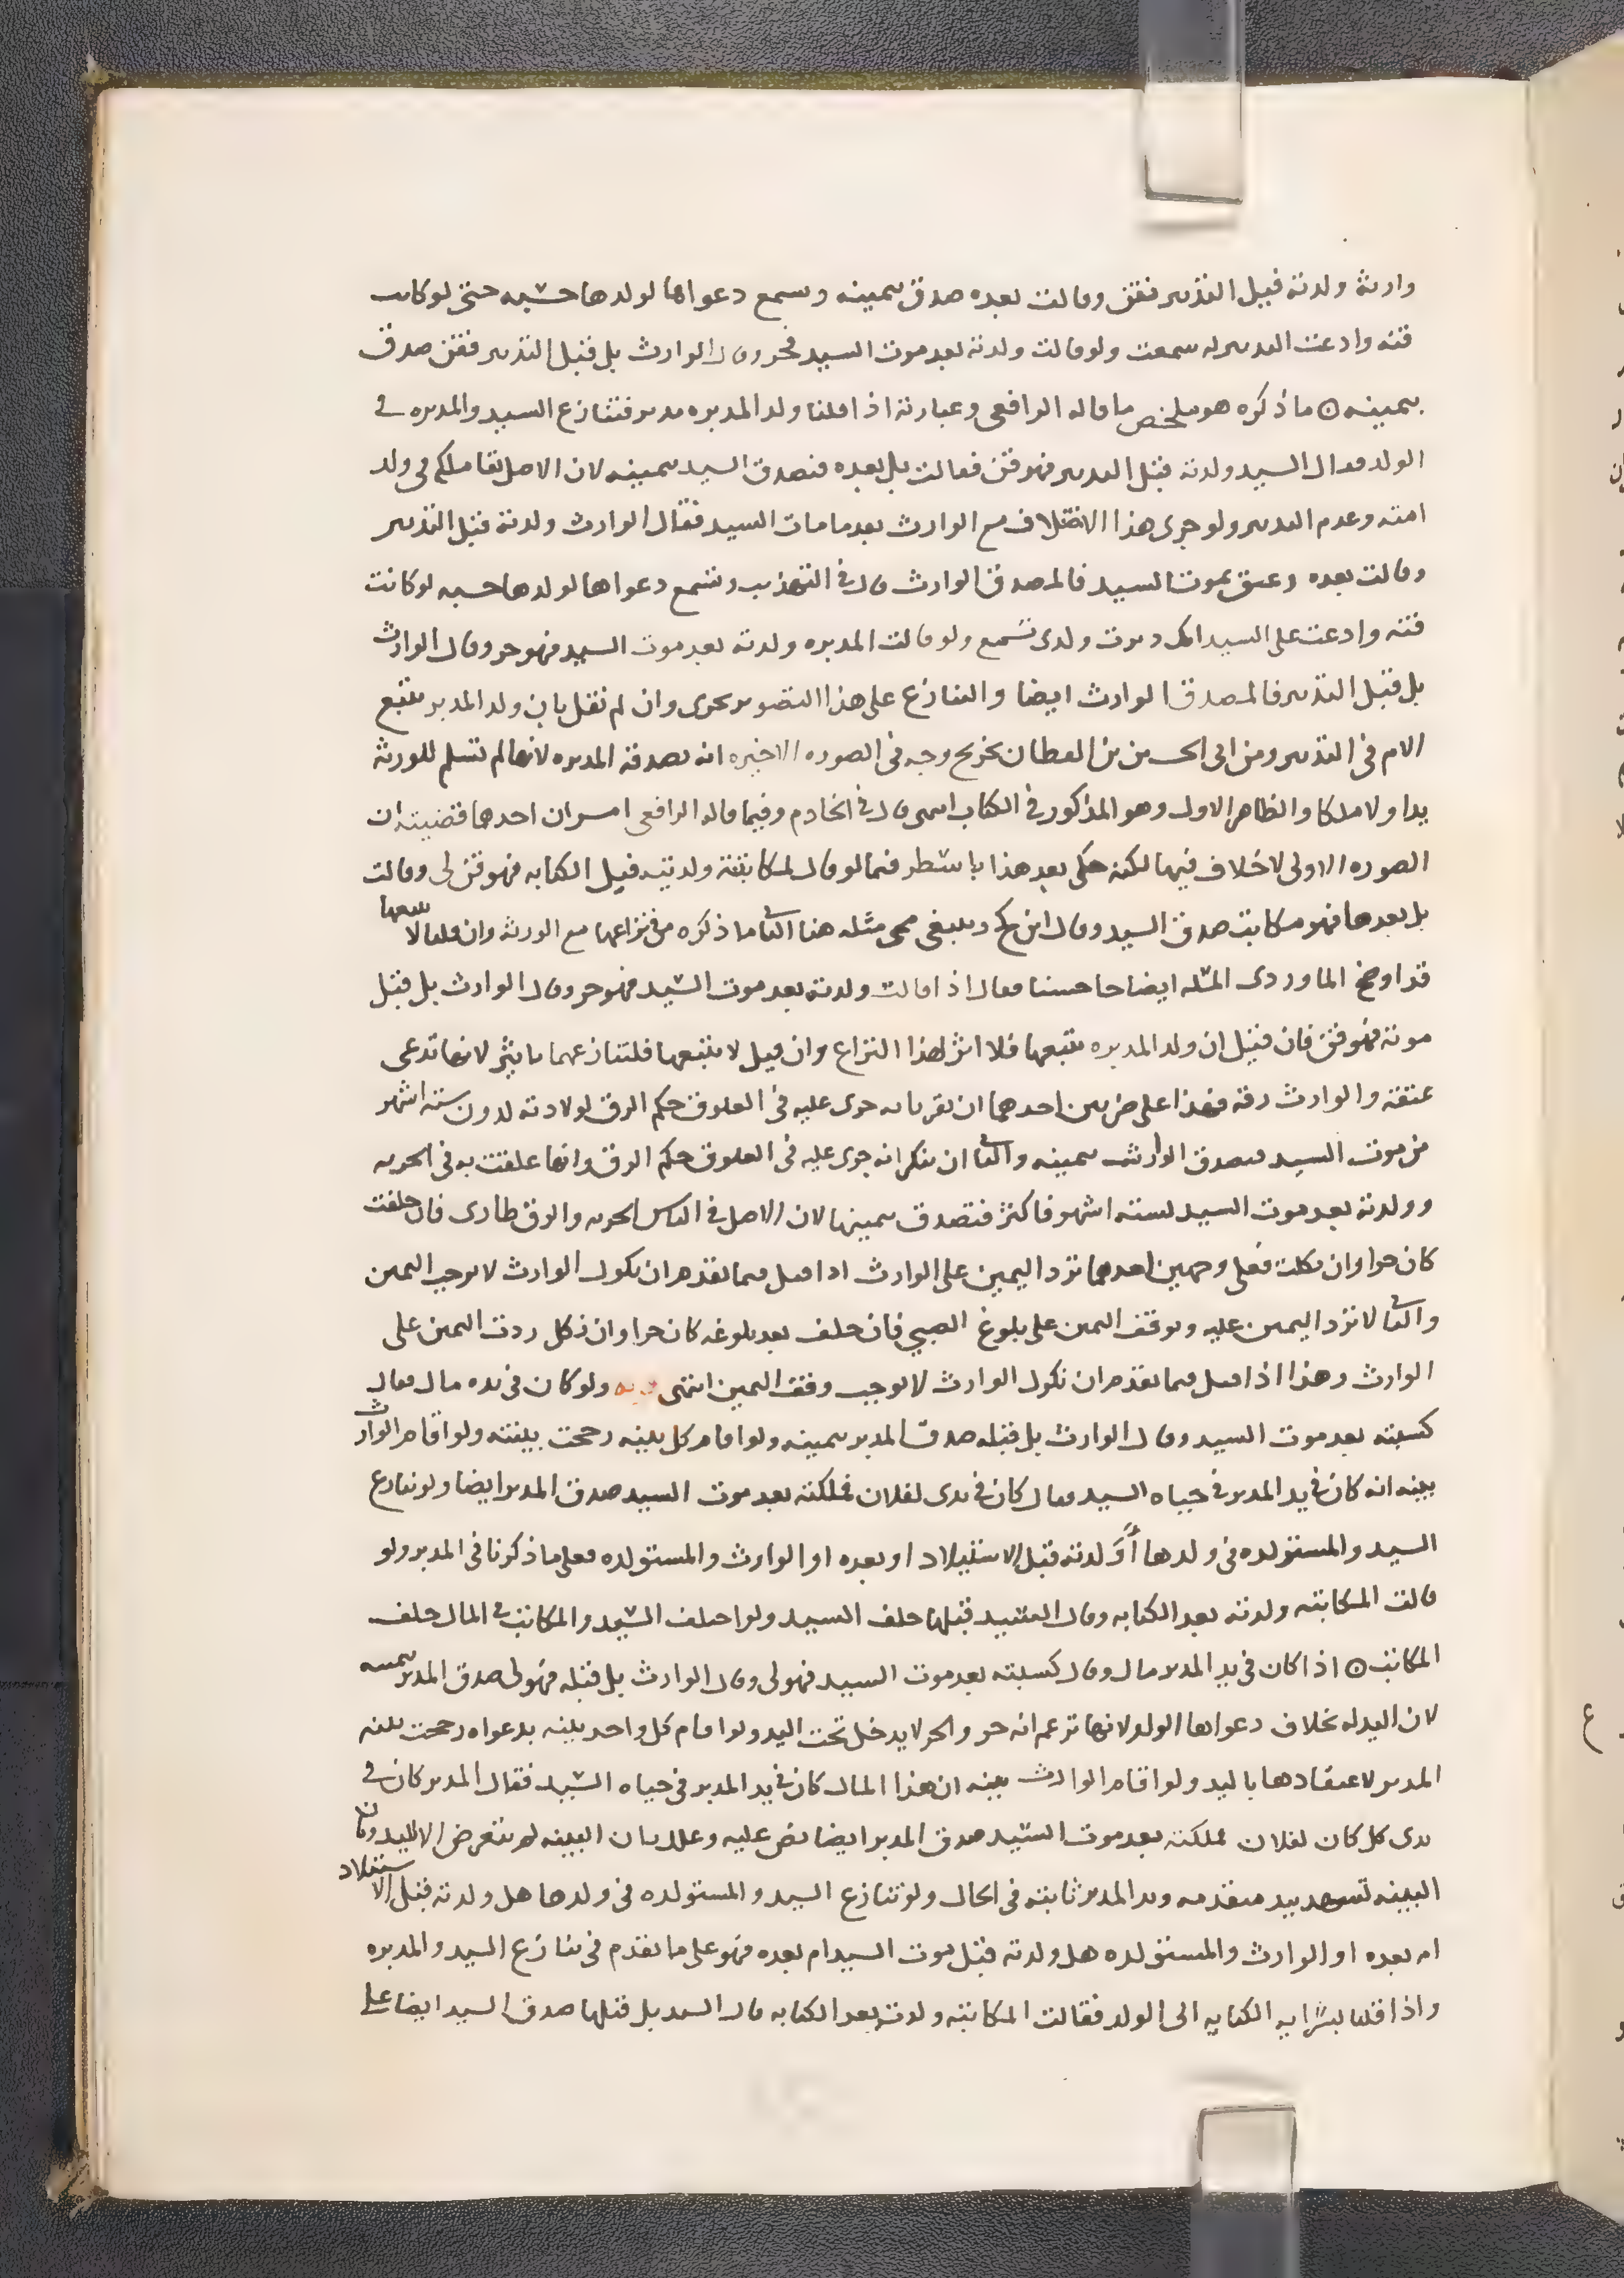 وارثه ولدته قبل التدبير فقن وقالت بعده صدق بيمينه وسمع دعواها لولدها حسبه حتى لو كانت
قنه وادعت التدبير له سمعت ولو قالت ولدته بعد موت السيد فحر وقال الوارث بل قبل التدبير فقن صدق
بيمينه ⊙ ما ذكره هو ملخص ما قاله الرافعي وعبارته اذا قلنا ولد المدبره مدبر فتنازع السيد والمدبره في
الولد فقال السيد ولدته قبل التدبير فهو قن فقالت بل بعده فيصدق السيد بيمينه لان الاصل بقا ملكه في ولد
امته وعدم التدبير ولو جرى هذا الاختلاف مع الوارث بعد ما مات السيد فقال الوارث ولدته قبل التدبير
وقالت بعده وعتق بموت السيد فالمصدق الوارث قال في التهذيب وتسمع دعواها لولدها حسبه لو كانت
قنه وادعت على السيد انك دبرت ولدى تسمع ولو قالت المدبره ولدته بعد موت السيد فهو حر وقال الوارث
بل قبل التدبير فالمصدق الوارث ايضا والتنازع على هذا التصوير يجرى وان لم نقل بان ولد المدبر يتبع
الام في التدبير وعن ابى الحسين بن القطان تخريج وجه في الصوره الاخيره انه تصدقه المدبره لانها لم تسلم للورثه
يدا ولا ملكا والظاهر الاول وهو المذكور في الكتاب انتهى قال في الخادم وفيما قاله الرافعي امران احدهما قضيته ان
الصوره الاولى لا خلاف فيها لكنه حكى بعد هذا باسطر فيما لو قال لمكاتبته ولدتيه قبل الكتابه فهو قن لى وقالت
بل بعدها فهو مكاتب صدق السيد وقال ابن كج وينبغي مجى مثله هنا الثانى ما ذكره من نزاعها مع الورثه وان قلنا لا يتبعها
قد اوضح الماوردى المسئله ايضاحا حسنا فقال اذا قالت ولدته بعد موت السيد فهو حر وقال الوارث بل قبل
موته فهو قن فان قيل ان ولد المدبره يتبعها فلا اثر لهذا النزاع وان قيل لا يتبعها فلتنازعهما تاثير لانها تدعى
عتقه والوارث رقه فهذا على ضربين احدهما ان تقر بانه جرى عليه في العلوق حكم الرق لولادته لدون سته اشهر
من موت السيد فيصدق الوارث بيمينه والثانى ان تنكر انه جرى عليه في العلوق حكم الرق وانها علقت به في الحريه
وولدته بعد موت السيد لسته اشهر فاكثر فتصدق بيمينها لان الاصل في الناس الحريه والرق طارى فان حلفت
كان حرا وان نكلت فعلى وجهين احدهما ترد اليمين على الوارث اذا قيل فيما تقدم ان نكول الوارث لا يوجب اليمين
والثانى لا ترد اليمين عليه وتوقف اليمين على بلوغ الصبي فان حلف بعد بلوغه كان حرا وان نكل ردت اليمين على
الوارث وهذا اذا قيل فيما تقدم ان نكول الوارث لا يوجب وقف اليمين انتهى ولو كان في يده مال فقال
كسبته بعد موت السيد وقال الوارث بل قبله صدق المدبر بيمينه ولو اقام كل بينه رجحت بينته ولو اقام الوارث
بينه انه كان في يد المدبر في حياه السيد فقال كان في يدى لفلان فملكته بعد موت السيد صدق المدبر ايضا ولو تنازع
السيد والمستولده في ولدها أولدته قبل الاستيلاد او بعده او الوارث والمستولده فعلى ما ذكرنا في المدبر ولو
قالت المكاتبه ولدته بعد الكتابه وقال السيد قبلها حلف السيد ولو اختلف السيد والمكاتب في المال حلف
المكاتب ⊙ اذا كان في يد المدبر مال وقال كسبته بعد موت السيد فهو لى وقال الوارث بل قبله فهو لى صدق المدبر بيمينه
لان اليد له بخلاف دعواها الولد لانها تزعم انه حر والحر لا يدخل تحت اليد ولو اقام كل واحد بينه بدعواه رجحت بينه
المدبر لاعتضادها باليد ولو اقام الوارث بينه ان هذا المال كان في يد المدبر في حياه السيد فقال المدبر كان في
يدى كان لفلان فملكته بعد موت السيد صدق المدبر ايضا نص عليه وعلله بان البينه لم تتعرض الا لليد وبان
البينه تشهد بيد متقدمه ويد المدبر ثابته في الحال ولو تنازع السيد والمستولده في ولدها هل ولدته قبل الاستيلاد
ام بعده او الوارث والمستولده هل ولدته قبل موت السيد ام بعده فهو على ما تقدم في تنازع السيد والمدبره
واذا قلنا بسرايه الكتابه الى الولد فقالت المكاتبه ولدته بعد الكتابه قال السيد بل قبلها صدق السيد ايضا على